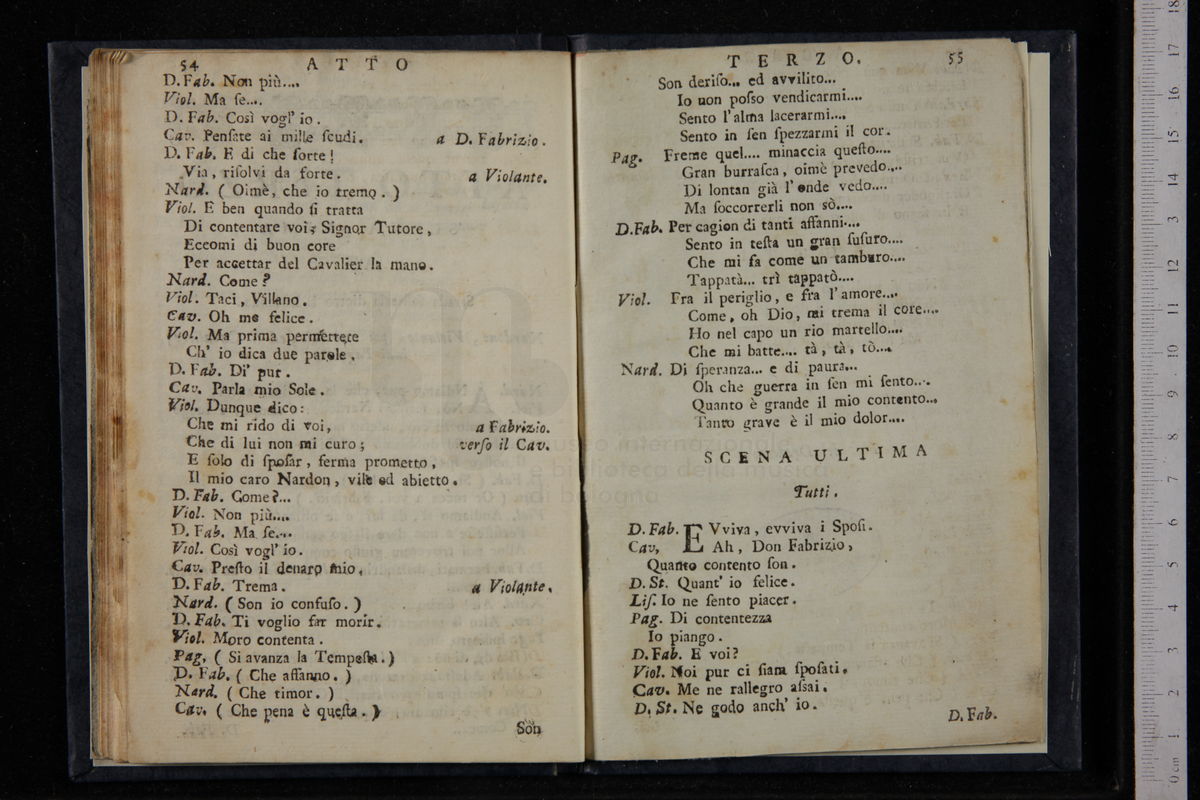 54 ATTO
D. Fab. Non più....
Viol. Ma ſe....
D. Fab. Così vogl' io.
Cav. Penſate ai mille ſcudi. a D. Fabrizio.
D. Fab. E di che ſorte!
Via, riſolvi da forte. a Violante.
Nard. ( Oimè, che io tremo. )
Viol. E ben quando ſi tratta
Di contentare voi, Signor Tutore,
Eccomi di buon core
Per accettar del Cavalier la mano.
Nard. Come?
Viol. Taci, Villano.
Cav. Oh me felice.
Viol. Ma prima permettete
Ch' io dica due parole.
D. Fab. Di' pur.
Cav. Parla mio Sole.
Viol. Dunque dico:
Che mi rido di voi, a Fabrizio.
Che di lui non mi curo; verſo il Cav.
E ſolo di ſpoſar, ferma prometto,
Il mio caro Nardon, vile ed abietto.
D. Fab. Come?...
Viol. Non più....
D. Fab. Ma ſe....
Viol. Così vogl' io.
Cav. Preſto il denaro mio.
D. Fab. Trema. a Violante.
Nard. ( Son io confuſo. )
D. Fab. Ti voglio far morir.
Viol. Moro contenta.
Pag. ( Si avanza la Tempeſta. )
D. Fab. ( Che affanno. )
Nard. ( Che timor. )
Cav. ( Che pena è queſta. )
Son
TERZO. 55
Son deriſo... ed avvilito...
Io non poſſo vendicarmi....
Sento l'alma lacerarmi....
Sento in ſen ſpezzarmi il cor.
Pag. Freme quel.... minaccia queſto....
Gran burraſca, oimè prevedo....
Di lontan già l'onde vedo....
Ma ſoccorrerli non sò....
D.Fab. Per cagion di tanti affanni....
Sento in teſta un gran ſuſuro....
Che mi fa come un tamburo....
Tappatà... trì tappatò....
Viol. Fra il periglio, e fra l'amore....
Come, oh Dio, mi trema il core....
Ho nel capo un rio martello....
Che mi batte.... tà, tà, tò....
Nard. Di ſperanza... e di paura...
Oh che guerra in ſen mi ſento....
Quanto è grande il mio contento...
Tanto grave è il mio dolor....
SCENA ULTIMA
Tutti.
D. Fab. EVviva, evviva i Spoſi.
Cav. Ah, Don Fabrizio,
Quanto contento ſon.
D. St. Quant' io felice.
Liſ. Io ne ſento piacer.
Pag. Di contentezza
Io piango.
D. Fab. E voi?
Viol. Noi pur ci ſiam ſpoſati.
Cav. Me ne rallegro aſſai.
D. St. Ne godo anch' io.
D. Fab.
museo internazionale
e biblioteca della musica
di bologna
0 cm 1 2 3 4 5 6 7 8 9 10 11 12 13 14 15 16 17 18